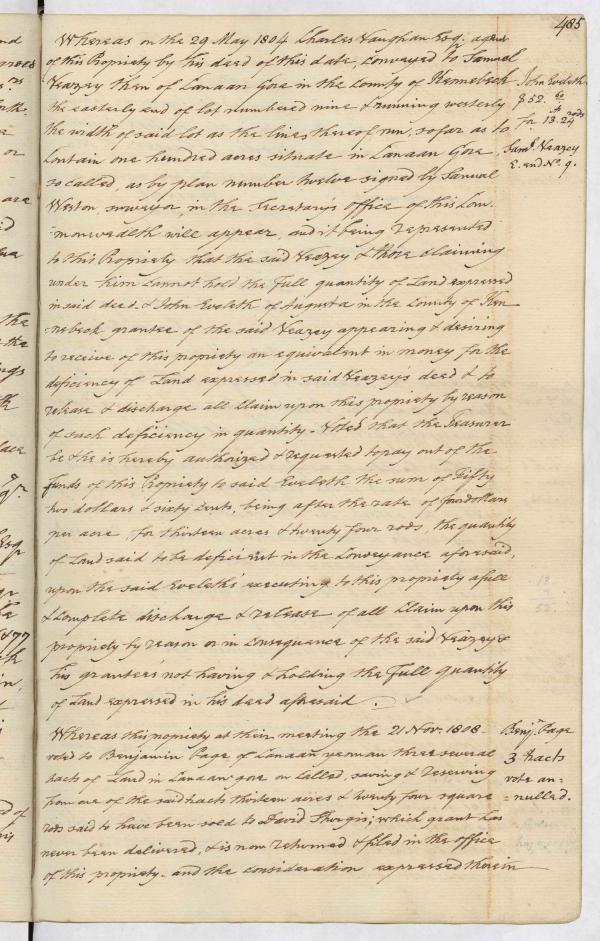 485
Whereas on the 29 May 1804 Charles Vaughan Esqr. agent
of this Propriety by his deed of this date, conveyed to Samuel
Veazey then of Canaan Gore in the County of Kennebeck
the easterly end of lot numbered nine & running westerly
the width of said lot as the lines thereof run, so far as to
contain one hundred acres situate in Canaan Gore
so called, as by plan number twelve signed by Samuel
Weston, surveyor, in the Secretary's office of this Com-
-monwealth will appear, and it being represented
to this Propriety that the said Veazey & those claiming
under him cannot hold the full quantity of Land expressed
in said deed & John Eveleth of Augusta in the County of Ken
-nebeck grantee of the said Veazey appearing & desiring
to receive of this propriety an equivalent in money for the
deficiency of Land expressed in said Veazey's deed & to
release & discharge all Claim upon this propriety by reason
of such deficiency in quantity - Voted that the Treasurer
be & he is hereby authorized & requested to pay out of the
funds of this Propriety to said Eveleth the sum of Fifty
two dollars & sixty cents, being after the rate of four dollars
per acre, for thirteen acres & twenty four rods, the quantity
of Land said to be deficient in the Conveyance aforesaid,
upon the said Eveleth's executing to this propriety a full
& complete discharge & release of all Claim upon this
propriety by reason or in consequence of the said Veazey &
his grantees not having & holding the full quantity
of Land expressed in his deed aforesaid.
John Eveleth
$52. 60
for 13. 24 rods
Saml. Veazey
E. end No. 9.
Whereas this propriety at their meeting the 21 Nov. 1808
voted to Benjamin Page of Canaan yeoman three several
tracts of Land in Canaan gore so called, saving & reserving
from one of the said tracts thirteen acres & twenty four square
rods said to have been sold to David Sturgis; which grant has
never been delivered, & is now returned & filed in the office
of this propriety - and the consideration expressed therein
Benjn. Page
3 tracts
vote an=
=nulled.